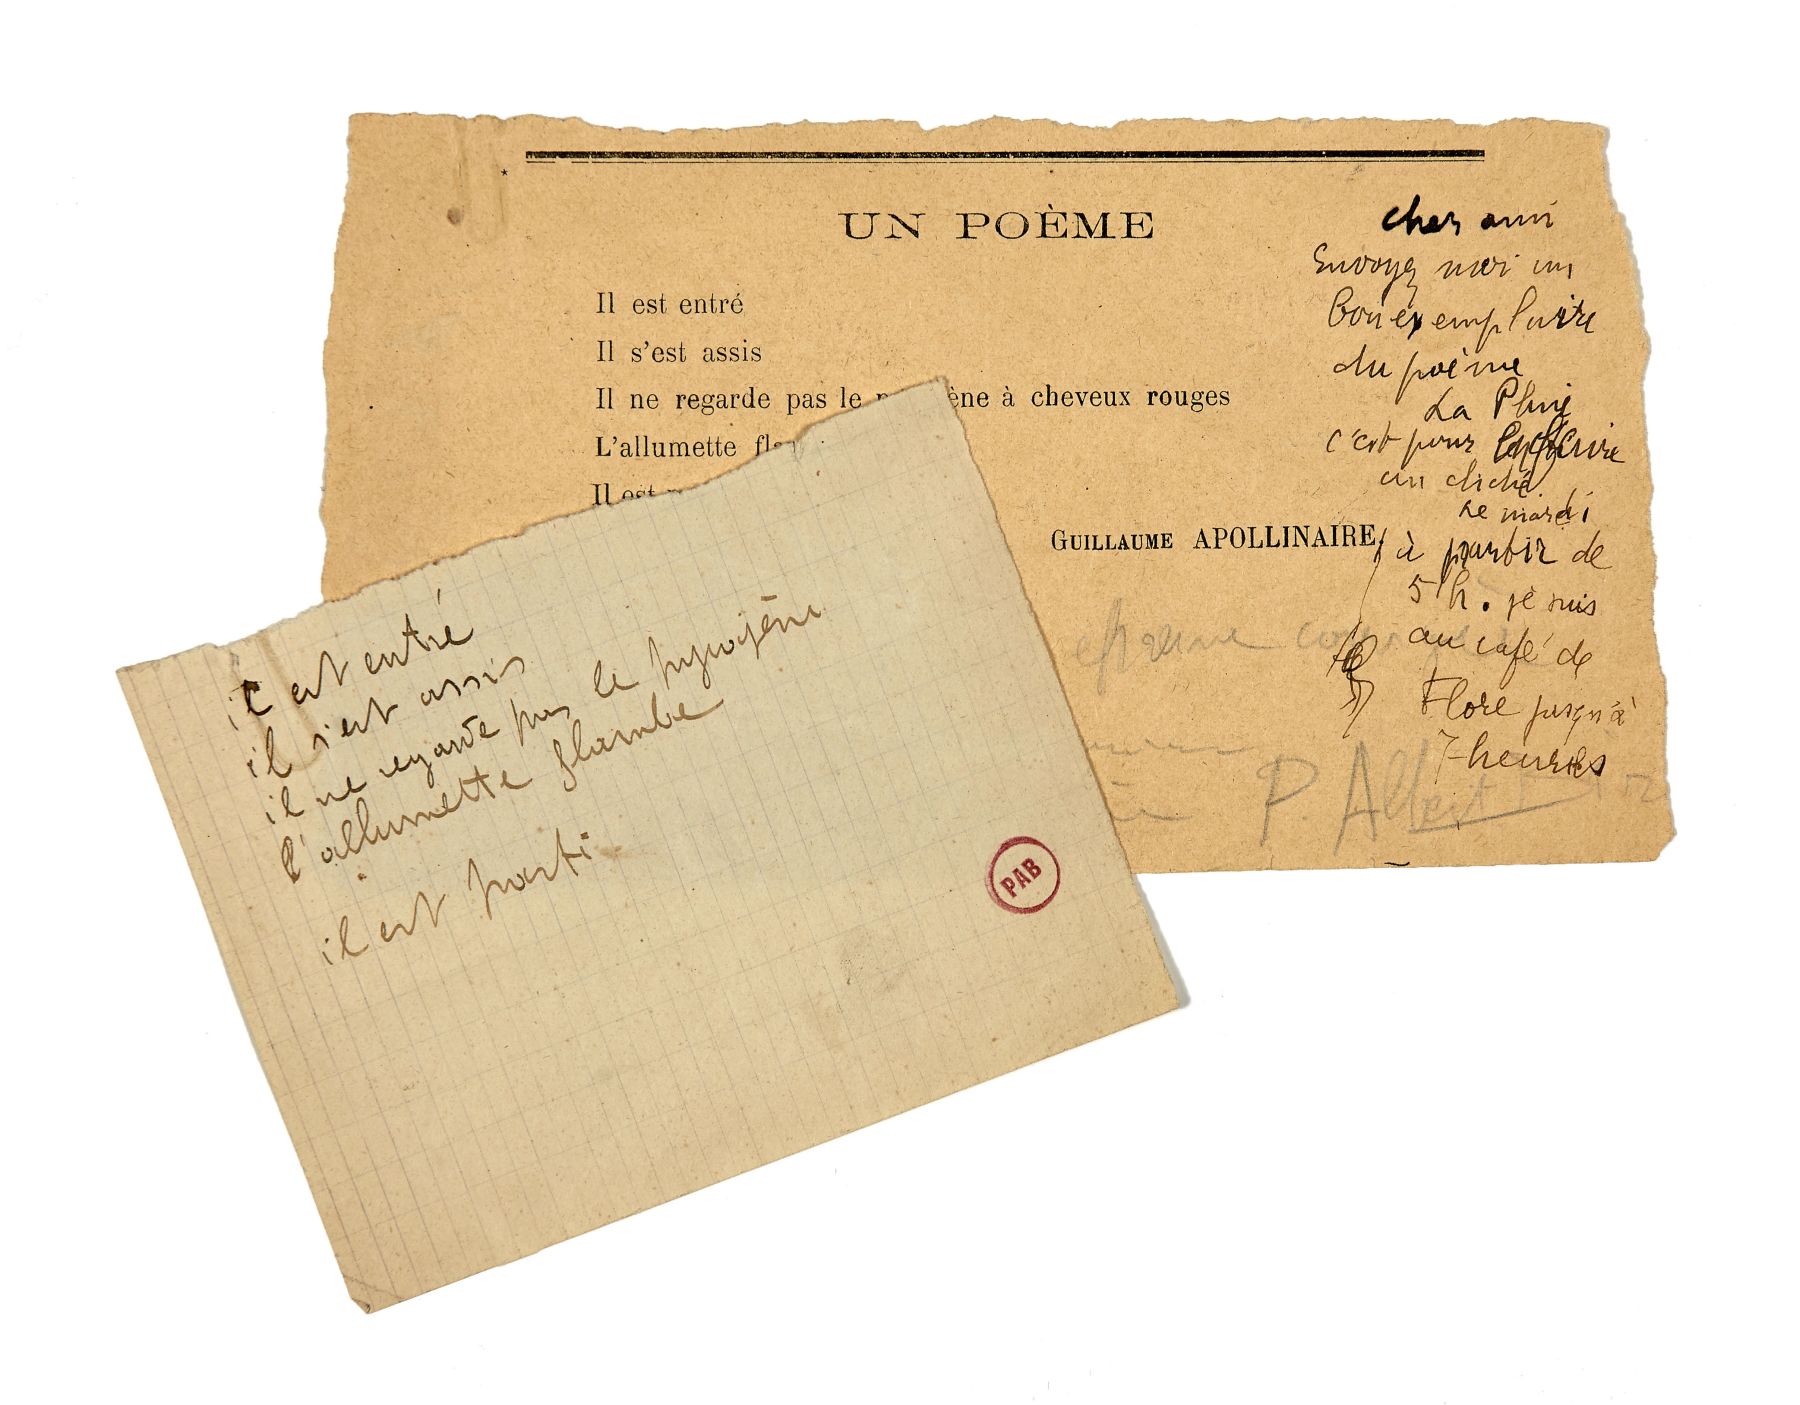 UN POÈME
Il est entré
Il s'est assis
Il ne regarde pas le ène à cheveux rouges
L'allumette fla
Il est
GUILLAUME APOLLINAIRE.
cher ami
Envoyez moi un
bon exemplaire
du poème
La Pluie
c'est pour
un cliché
Le mardi
à partir de
5 h. je suis
au café de
Flore jusqu'à
7 heures
P. Albert
il est entré
il s'est assis
il ne regarde pas le pyrogène
l'allumette flambe
il est parti
PAB